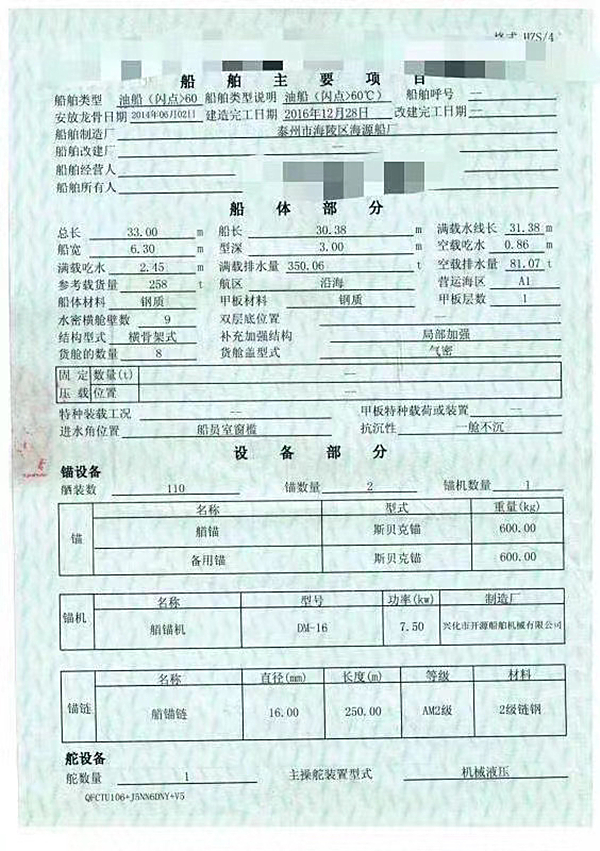 格式 HZS/4
船舶主要项目
船舶类型 油船（闪点>60 船舶类型说明 油船（闪点>60℃） 船舶呼号 —
安放龙骨日期 2014年06月02日 建造完工日期 2016年12月28日 改建完工日期 —
船舶制造厂 泰州市海陵区海源船厂
船舶改建厂 —
船舶经营人
船舶所有人
船体部分
总长 33.00 m 船长 30.38 m 满载水线长 31.38 m
船宽 6.30 m 型深 3.00 m 空载吃水 0.86 m
满载吃水 2.45 m 满载排水量 350.06 t 空载排水量 81.07 t
参考载货量 258 t 航区 沿海 营运海区 A1
船体材料 钢质 甲板材料 钢质 甲板层数 1
水密横舱壁数 9 双层底位置 —
结构型式 横骨架式 补充加强结构 局部加强
货舱的数量 8 货舱盖型式 气密
固定 数量(t) — —
压载 位置 — —
特种装载工况 -- 甲板特种载荷或装置 --
进水角位置 船员室窗槛 抗沉性 一舱不沉
设备部分
锚设备
舾装数 110 锚数量 2 锚机数量 1
名称 型式 重量(kg)
锚 艏锚 斯贝克锚 600.00
备用锚 斯贝克锚 600.00
名称 型号 功率(kw) 制造厂
锚机 艏锚机 DM-16 7.50 兴化市开源船舶机械有限公司
名称 直径(mm) 长度(m) 等级 材料
锚链 艏锚链 16.00 250.00 AM2级 2级链钢
舵设备
舵数量 1 主操舵装置型式 机械液压
QFCTU106+J5NN6DNY+V5